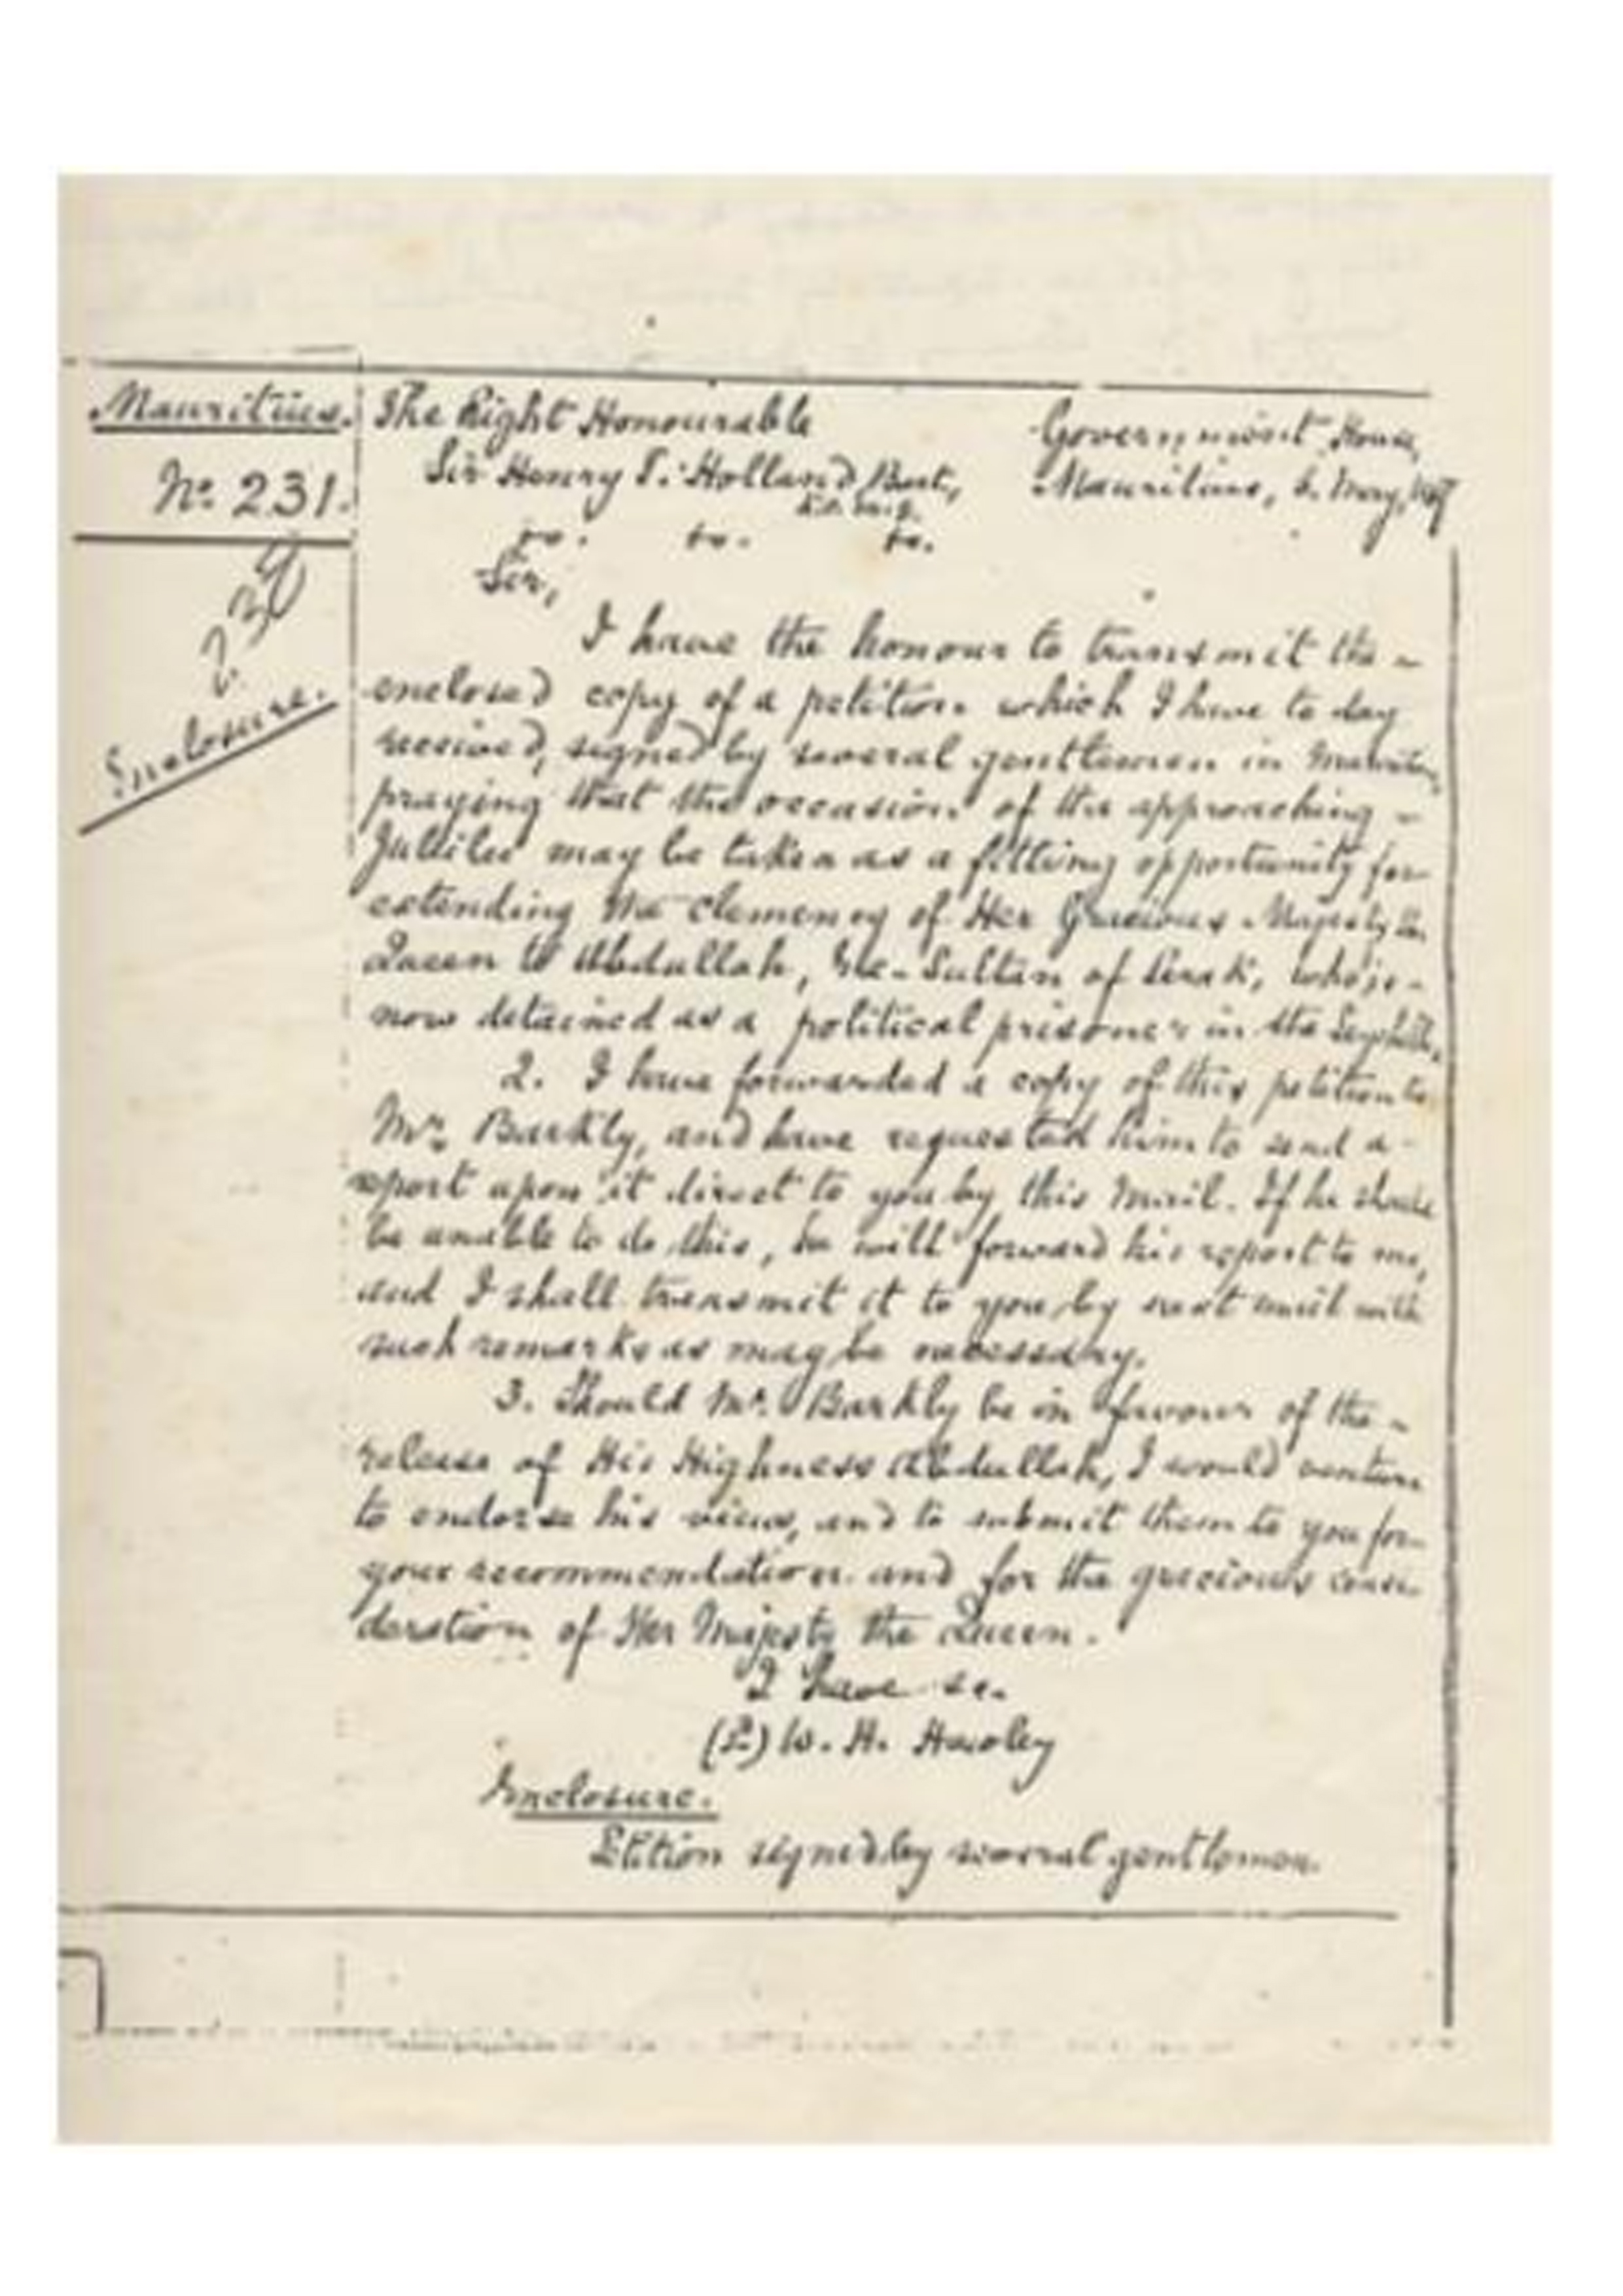 Mauritius.
No. 231.
234
Enclosure.
The Right Honourable
Sir Henry T. Holland Bart,
K.C.M.G.
&c. &c. &c.
Government House,
Mauritius, 6. May, 1887
Sir,
I have the honour to transmit the
enclosed copy of a petition which I have to day
received, signed by several gentlemen in Mauritius,
praying that the occasion of the approaching
Jubilee may be taken as a fitting opportunity for
extending the clemency of Her Gracious Majesty the
Queen to Abdullah, Ex-Sultan of Perak, who is
now detained as a political prisoner in the Seychelles.
2. I have forwarded a copy of this petition to
Mr. Barkly, and have requested him to send a
report upon it direct to you by this Mail. If he should
be unable to do this, he will forward his report to me,
and I shall transmit it to you by next mail with
such remarks as may be necessary.
3. Should Mr. Barkly be in favour of the
release of His Highness Abdullah, I would venture
to endorse his views, and to submit them to you for
your recommendation and for the gracious consi-
deration of Her Majesty the Queen.
I have &c.
W. H. Hawley
Enclosure.
Petition signed by several gentlemen.